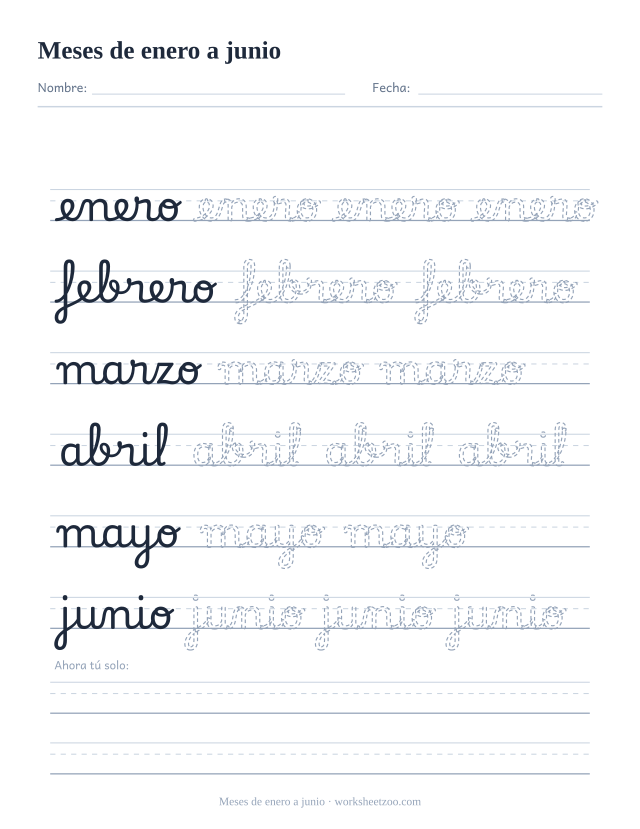 Meses de enero a junio
Nombre: Fecha:
enero enero enero enero
febrero febrero febrero
marzo marzo marzo
abril abril abril abril
mayo mayo mayo
junio junio junio junio
Ahora tú solo:
Meses de enero a junio · worksheetzoo.com